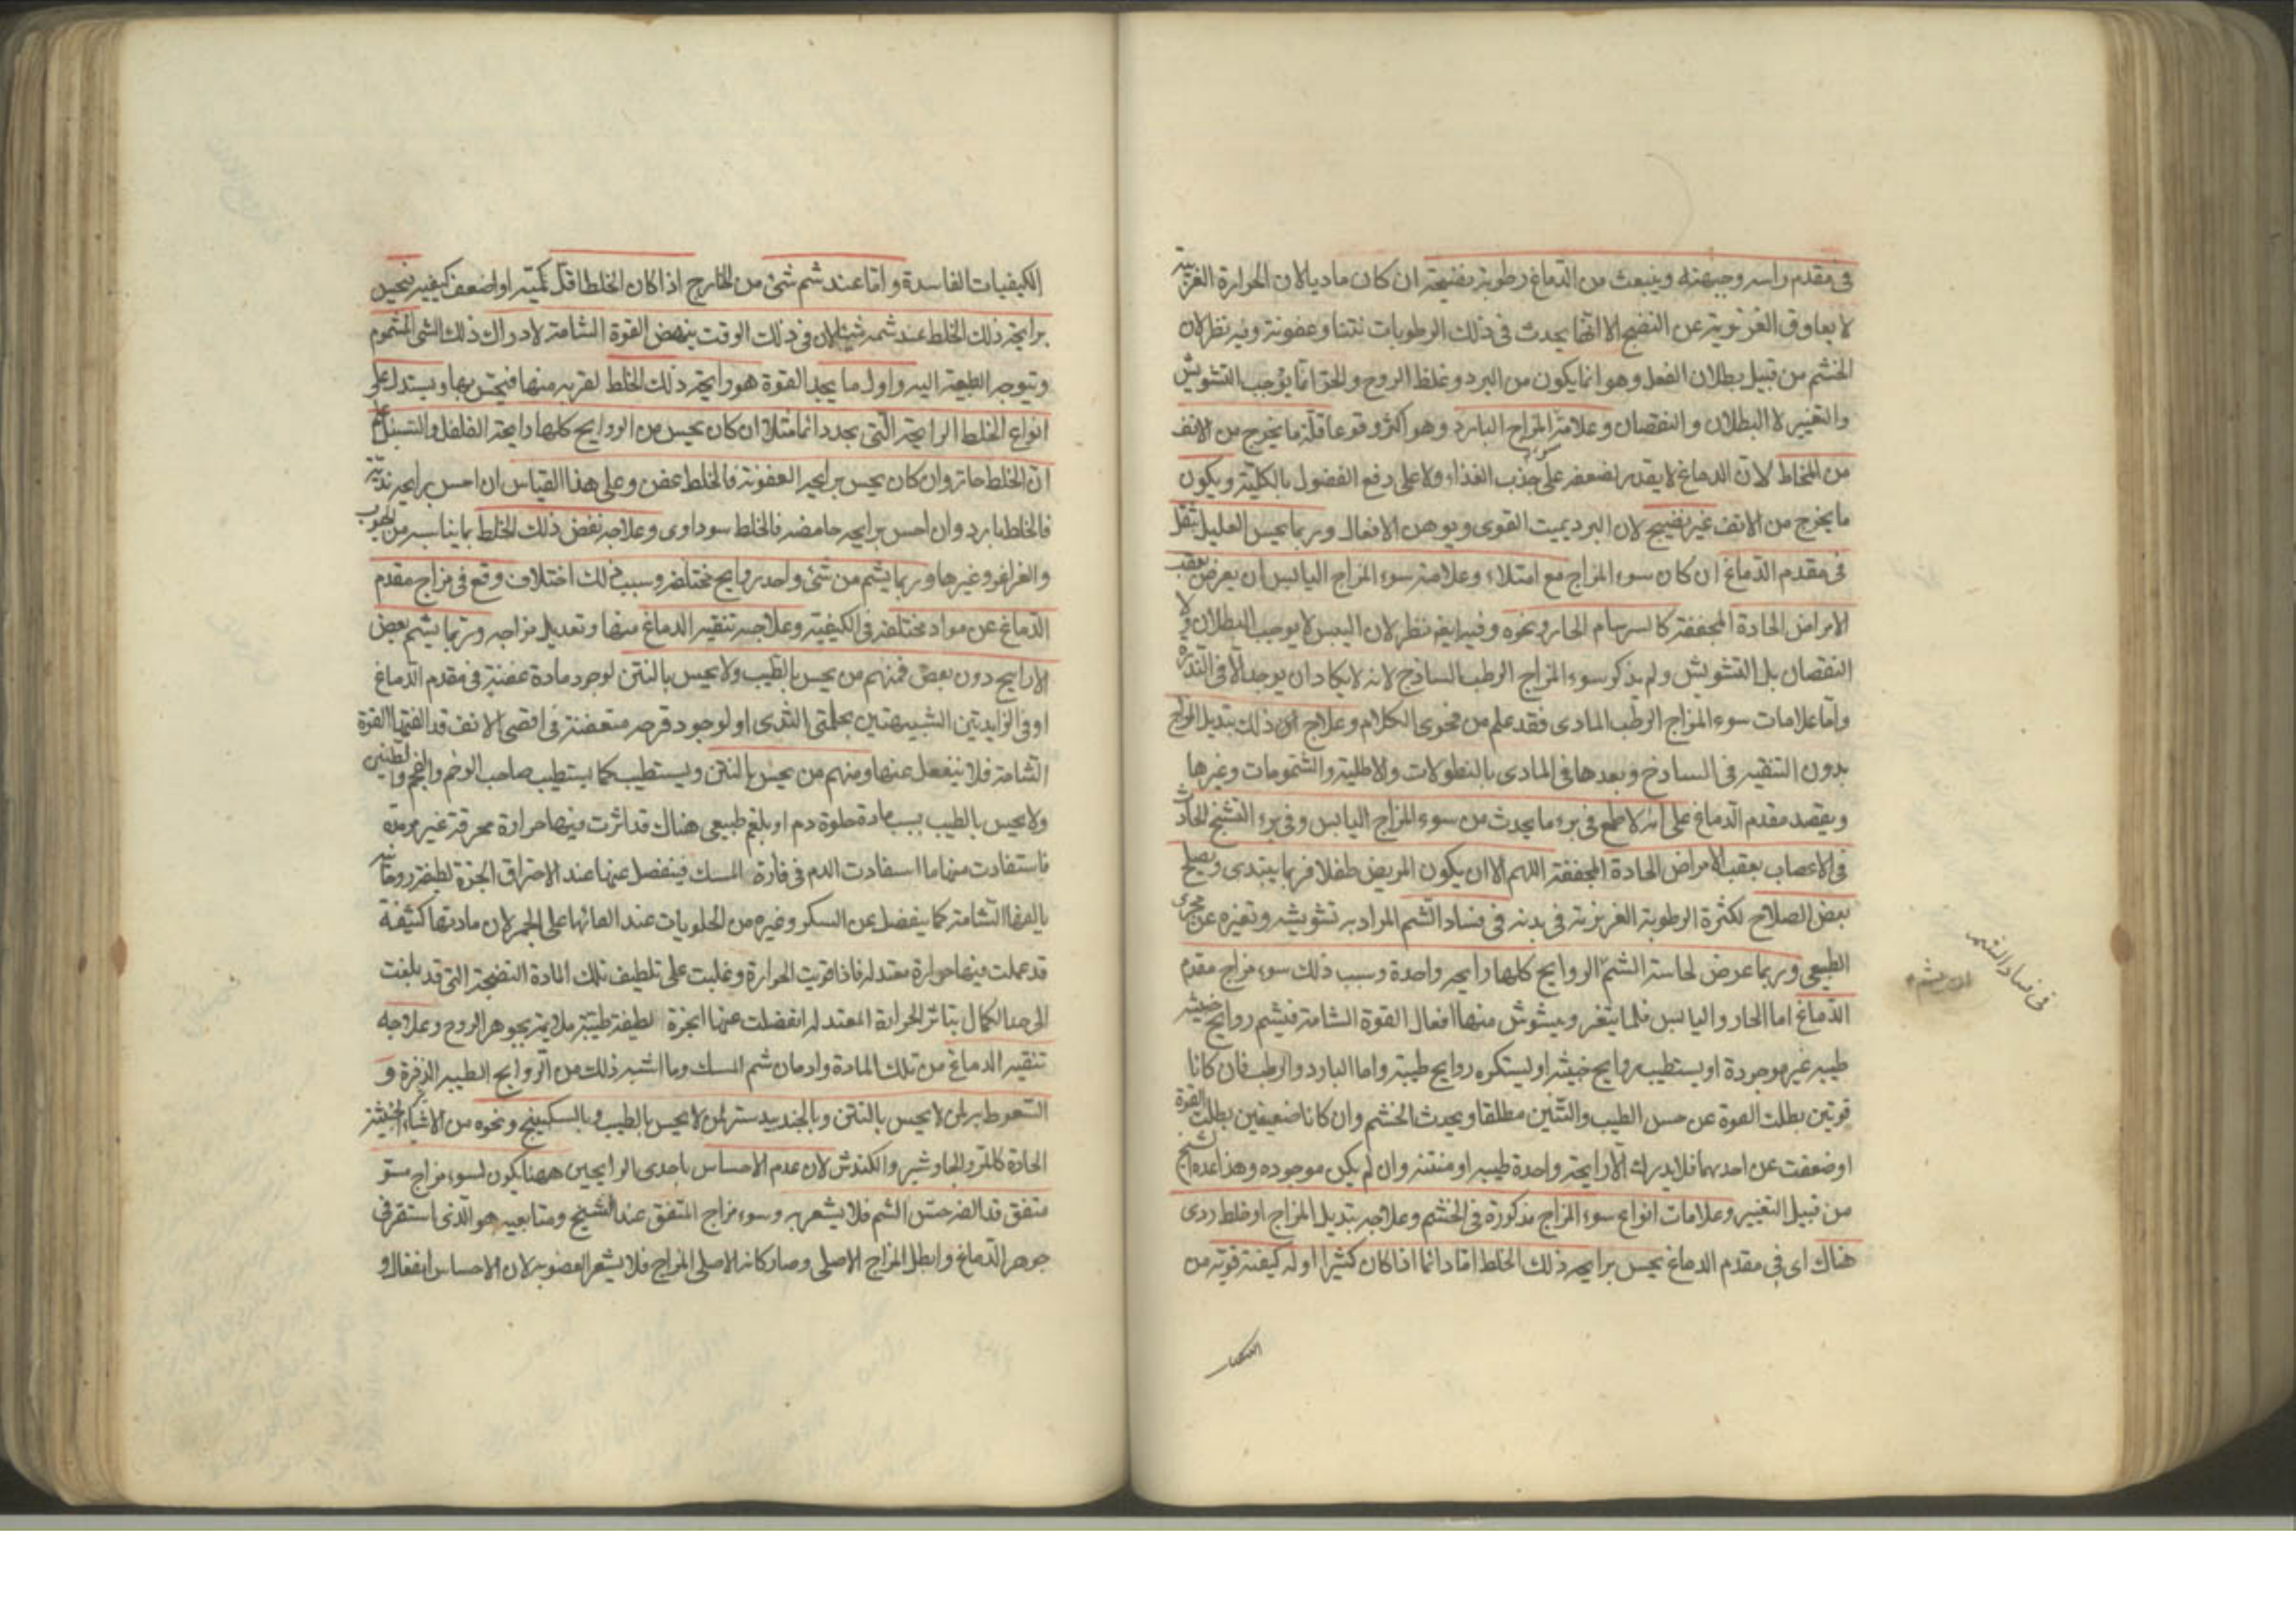 في مقدم راسه وجبهته وينبعث من الدماغ رطوبة نضيجة ان كان ماديا لان الحرارة الغريبة
لا يعاوق الغريزية عن النضج الا انها يحدث في ذلك الرطوبات نتنا وعفونة وفيه نظر لان
الخشم من قبيل بطلان الفعل وهو انما يكون من البرد وغلظ الروح والحر انما يوجب التشويش
والتغيير لا البطلان والنقصان وعلامة المزاج البارد وهو اكثر وقوعا قلة ما يخرج من الانف
من المخاط لان الدماغ لا يقدر لضعفه على جذب الغذاء ولا على دفع الفضول بالكلية ويكون
ما يخرج من الانف غير نضيج لان البرد يميت القوى ويوهن الافعال وربما يحس العليل بثقل
في مقدم الدماغ ان كان سوء المزاج مع امتلاء وعلامة سوء المزاج اليابس ان يعرض بعقب
الامراض الحادة المجففة كالسرسام الحار ونحوه وفيه ايضا نظر لان اليبس لا يوجب البطلان ولا
النقصان بل التشويش ولم يذكر سوء المزاج الرطب الساذج لانه لا يكاد ان يوجد الا في الندرة
واما علامات سوء المزاج الرطب المادي فقد علم من فحوى الكلام وعلاج ذلك تبديل المزاج
بدون التنقية في الساذج وبعدها في المادي بالنطولات والاطلية والشمومات وغيرها
ويقصد مقدم الدماغ على انه لا طمع في برء ما يحدث من سوء المزاج اليابس وفي برء التشنج الحادث
في الاعصاب بعقب الامراض الحادة المجففة اللهم الا ان يكون المريض طفلا فربما يبتدى ويصلح
بعض الصلاح لكثرة الرطوبة الغريزية في بدنه في فساد الشم المراد به تشويشه وتغيره عن مجرى
الطبيعي وربما عرض لحاسة الشم الروايح كلها رايحة واحدة وسبب ذلك سوء مزاج مقدم
الدماغ اما الحار واليابس فلما يتغير ويشوش منها افعال القوة الشامة فيشم روايح خبيثه
طيبه غير موجودة او يستطيب روايح خبيثه او يستكره روايح طيبة واما البارد والرطب فان كانا
قويين بطلت القوة عن حس الطيب والنتن مطلقا ويحدث الخشم وان كانا ضعيفين بطلت القوة
او ضعفت عن احدهما فلا يدرك الا رايحة واحدة طيبه او منتنه وان لم يكن موجوده وهذا عده الشيخ
من قبيل التغيير وعلامات انواع سوء المزاج مذكورة في الخشم وعلاجه بتبديل المزاج او خلط ردى
هناك اى في مقدم الدماغ يحس برايحة ذلك الخلط اما دائما اذا كان كثيرا او له كيفية قوية من
في فساد الشم
الكيفيات الفاسدة واما عند شم شئ من الخارج اذا كان الخلط اقل كمية او اضعف كيفيه فيحس
برايحة ذلك الخلط عند شمه شيئا لان في ذلك الوقت ينهض القوة الشامة لادراك ذلك الشى المشموم
وتيوجه الطبيعة اليه واول ما يجد القوة هو رايحة ذلك الخلط لقربه منها فيحس بها ويستدل على
انواع الخلط الرايحة التى يجد دائما مثلا ان كان يحس من الروايح كلها رايحة الفلفل والسنبل علم
ان الخلط حار وان كان يحس برايحة العفونة فالخلط عفن وعلى هذا القياس ان احس برايحة نديه
فالخلط بارد وان احس برايحه حامضه فالخلط سوداوى وعلاجه نفض ذلك الخلط بما يناسبه من الحبوب
والغراغر وغيرها وربما يشم من شئ واحد روايح مختلفه وسبب ذلك اختلاف وقع في مزاج مقدم
الدماغ عن مواد مختلفه في الكيفية وعلاجه تنقية الدماغ منها وتعديل مزاجه وربما يشم بعض
الارايح دون بعض فمنهم من يحس بالطيب ولا يحس بالنتن لوجود مادة عفنة في مقدم الدماغ
او في الزايدتين الشبيهتين بحلمتى الثدى او لوجود قرحه متعفنة في اقصى الانف قد الفتها القوة
الشامة فلا ينفعل عنها ومنهم من يحس بالنتن ويستطيب كما يستطيب صاحب الوخم والفحم والطين
ولا يحس بالطيب بسبب مادة حلوة دم او بلغم طبيعى هناك قد اثرت فيها حرارة محرقة غير
فاستفادت منها ما استفادت الدم في فارة المسك فينفصل عنها عند الاحتراق ابخرة لطيفة روحانيه
يالفها الشامة كما ينفصل عن السكر وغيره من الحلويات عند القائها على الجمر لان مادتها كثيفة
قد عملت فيها حرارة معتدله فاذا قويت الحرارة وغلبت على تلطيف تلك المادة النضجة التى قد بلغت
الى حد الكمال بتاثر الحرارة المعتدله انفصلت عنها ابخرة لطيفة طيبة ملايمة بجوهر الروح وعلاجه
تنقيه الدماغ من تلك المادة وادمان شم المسك وما اشبه ذلك من الروايح الطيبه الذفرة و
السعوط به لمن لا يحس بالنتن وبالجندبيدستر لمن لا يحس بالطيب وبالسكبينج ونحوه من الاشياء الخبيثة
الحادة كالمر والجاوشير والكندش لان عدم الاحساس باحدى الرايحتين ههنا يكون لسوء مزاج مستو
متفق قد الفه حس الشم فلا يشعر به وسوء مزاج المتفق عند الشيخ ومتابعيه هو الذى استقر في
جوهر الدماغ وابطل المزاج الاصلى وصار كانه الاصلى المزاج فلا يشعر العضو به لان الاحساس انفعال و